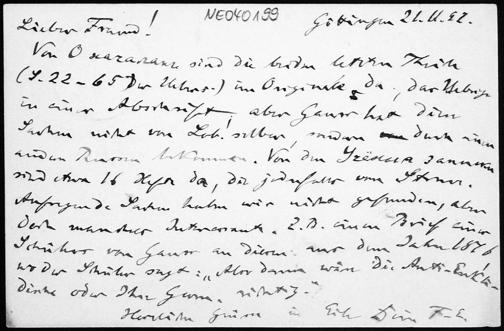 NE040199
Göttingen 21. II. 97.
Lieber Freund!
Von O началахъ sind die beiden letzten Theile
(S. 22-65 der Uebers.) im Original da, das Uebrige
in einer Abschrift, aber Gauss hat diese
Sachen nicht von Lob. selber, sondern durch einen
andern Russen bekommen. Von den Учёныя записки
sind etwa 16 Hefte da, die jedenfalls von
Aufregende Sachen haben wir nicht gefunden, aber
doch manches Interessante. Z.B. einen Brief eines
Schülers von Gauss an diesen aus dem Jahre 1816
wo der Schüler sagt: "Also dann wäre die Anti-Eukli-
dische oder Ihre Geom. richtig."
Herzliche Grüsse in Eile Dein F. E.